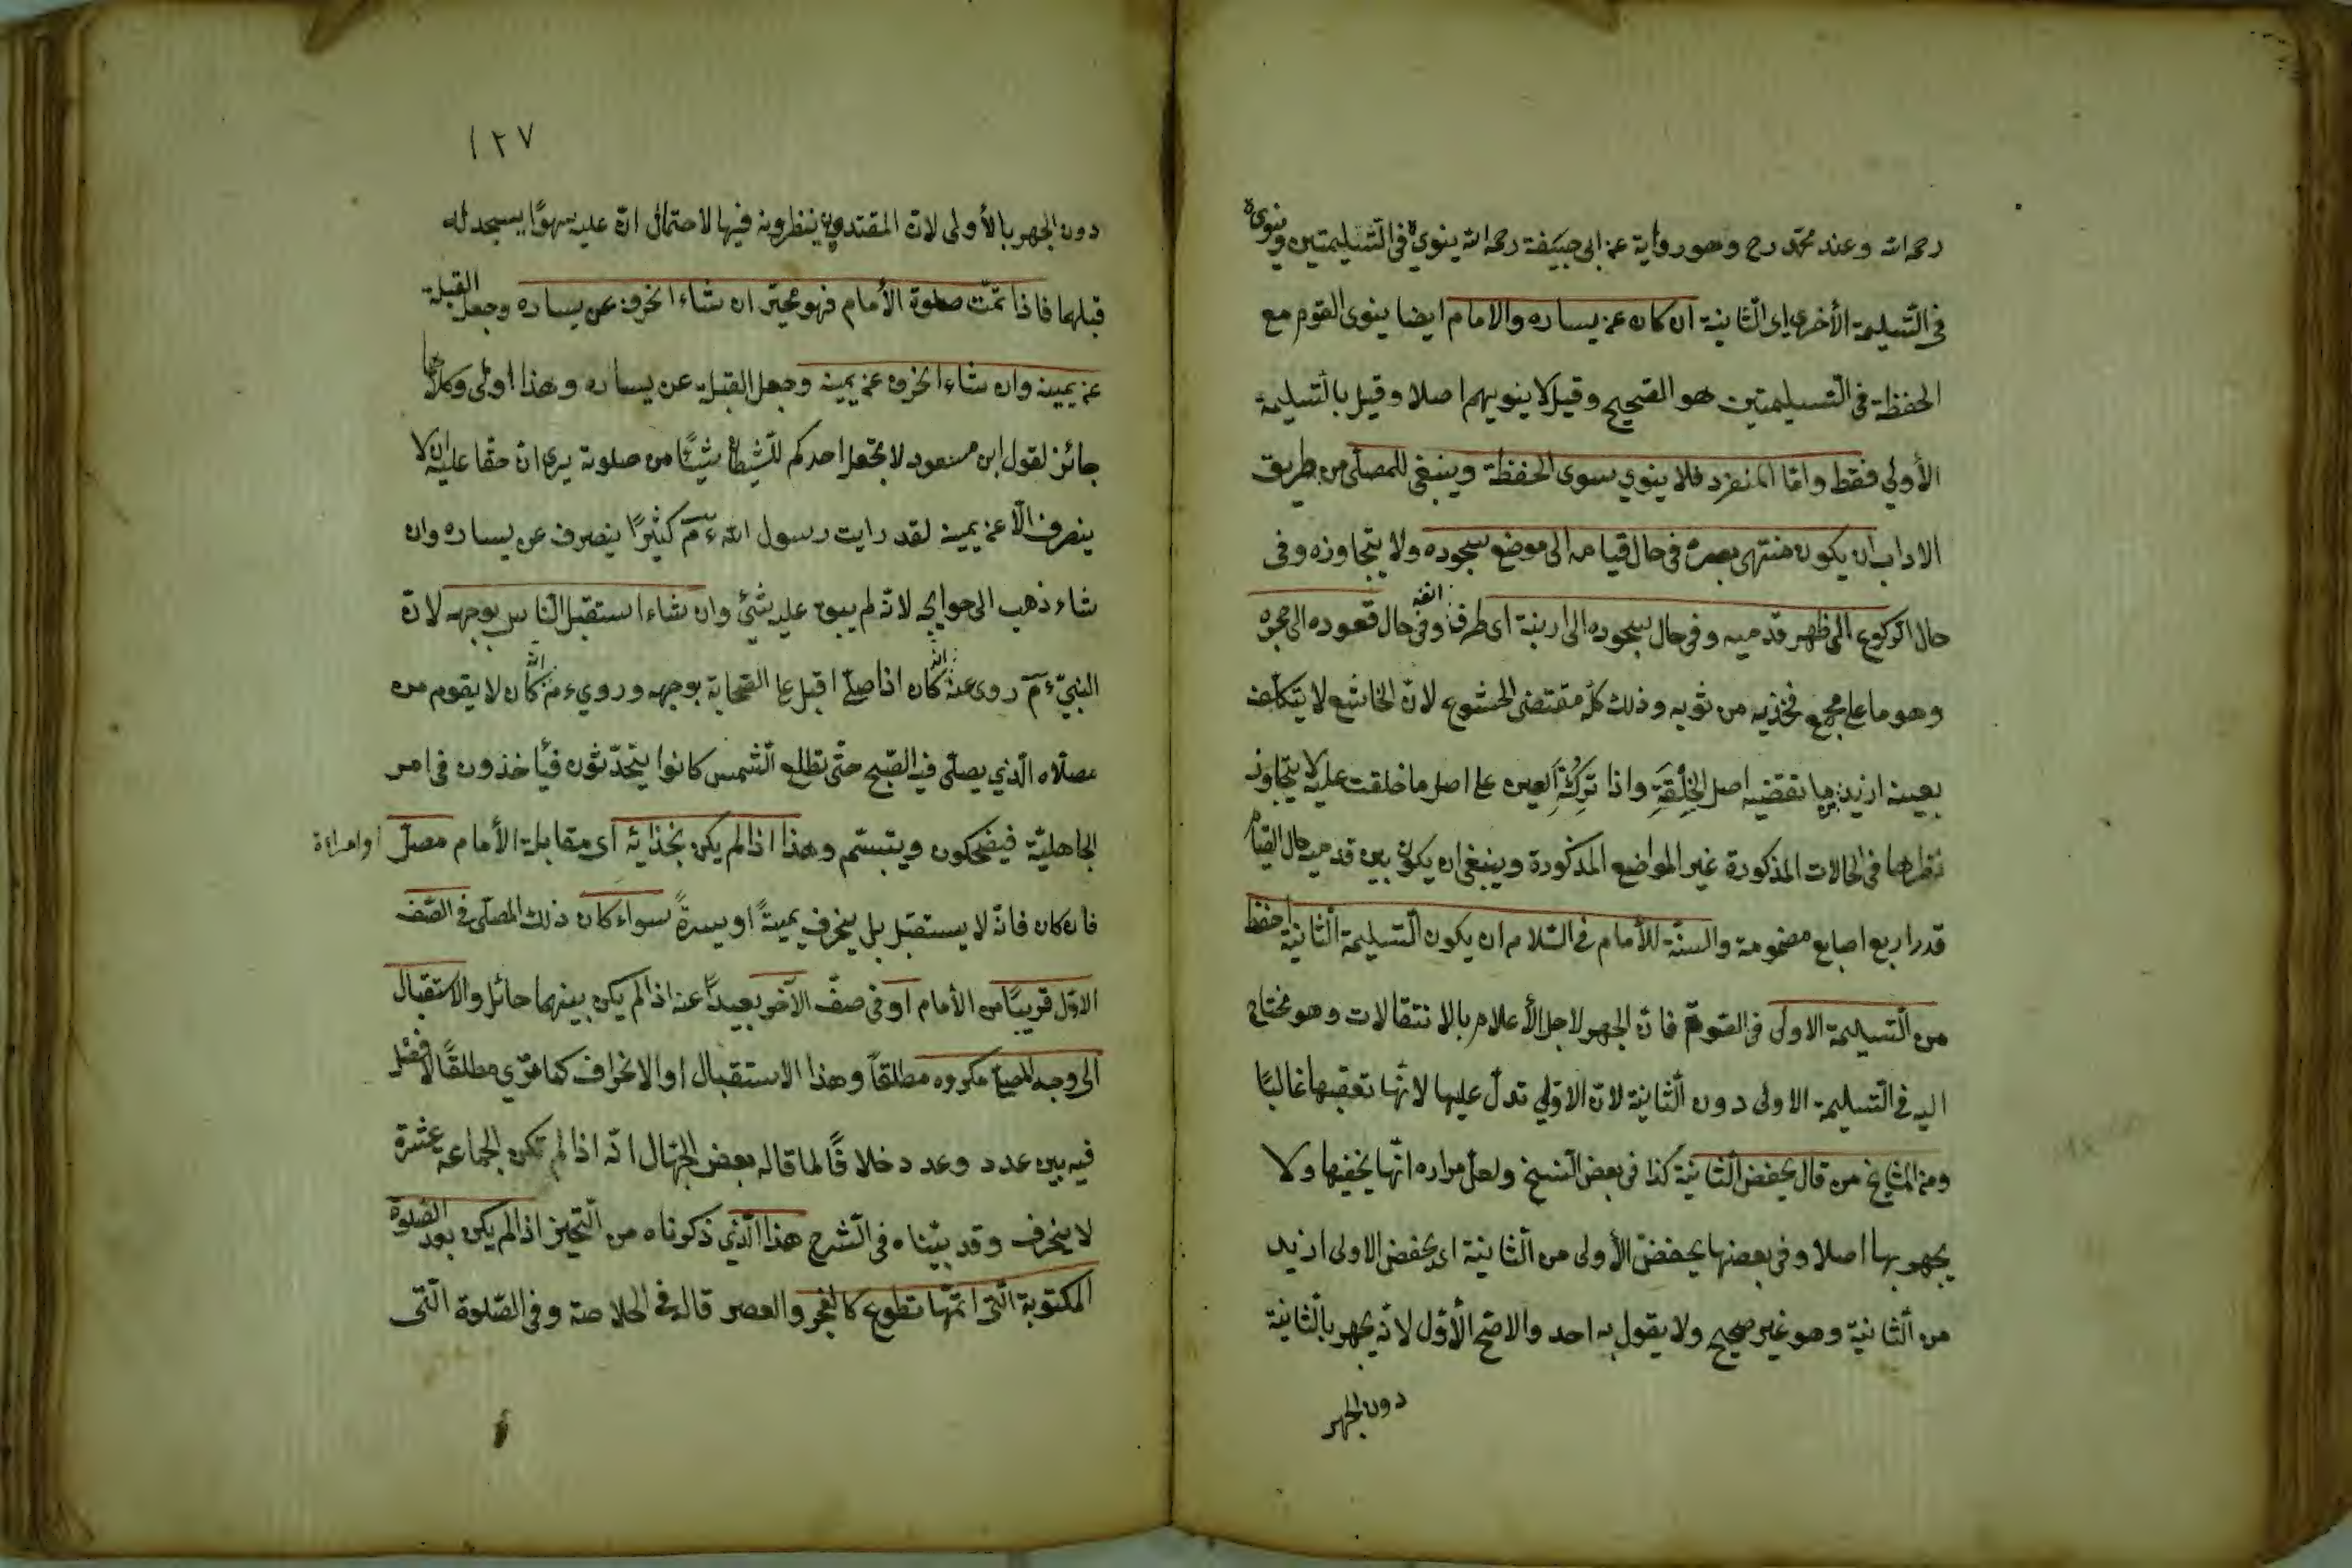 رحمه الله وعند محمد رح وهو رواية عن ابى حنيفة رحمه الله ينويه فى التسليمتين وينويه
فى التسليمة الأخرى اى الثانية ان كان عن يساره والامام ايضا ينوى القوم مع
الحفظة فى التسليمتين هو الصحيح وقيل لا ينويهم اصلا وقيل بالتسليمة
الأولى فقط وامّا المنفرد فلا ينوي سوى الحفظة وينبغى للمصلّى من طريق
الاداب ان يكون منتهى بصره فى حال قيامه الى موضع سجوده ولا يتجاوزه وفى
حال الركوع الى ظهر قدميه وفى حال سجوده الى ارنبة اى طرف انفه وفى حال قعوده الى حجره
وهو ما على مجمع فخذيه من ثوبه وذلك كلّه مقتضى الخشوع لانّ الخاشع لا يتكلّف
بعينه ازيد مما تقتضيه اصل الخِلْقَةِ واذا تُرِكَتْ العين على اصل ما خلقت عليه لا يتجاوز
نظرها فى الحالات المذكورة غير المواضع المذكورة وينبغى ان يكون بين قدميه حال القيام
قدر اربع اصابع مضمومة والسنّة للأمام فى السّلام ان يكون التّسليمة الثّانية اخفظ
من التّسليمة الاولى فى الصّوت فانّ الجهر لاجل الأعلام بالانتقالات وهو محتاج
اليه فى التّسليمة الاولى دون الثّانية لانّ الاولى تدلّ عليها لانّها تعقبها غالبًا
ومن المشايخ من قال يخفض الثانية كذا فى بعض النسخ ولعلّ مراده انّها يخفيها ولا
يجهر بها اصلا وفى بعضها يخفض الأولى من الثّانية اى يخفض الاولى ازيد
من الثّانية وهو غير صحيح ولا يقول به احد والاصّح الأوّل لانّه يجهر بالثّانية
دون الجهر
١٢٧
دون الجهر بالأولى لانّ المقتدين ينظرونه فيها لاحتمال انّ عليه سهوًا يسجد له
قبلها فاذا تمّت صلوة الأمام فهو مخيّر ان شاء انحرف عن يساره وجعل القبلة
عن يمينه وان شاء انحرف عن يمينه وجعل القبلة عن يساره وهذا اولى وكلاهما
جائز لقول ابن مسعود لا يجعل احدكم للشيطان شيئًا من صلوته يرى انّ حقّا عليه ان لا
ينصرف الّا عن يمينه لقد رايت رسول الله ءم كثيرًا ينصرف عن يساره وان
شاء ذهب الى حوايجه لانّه لم يبق عليه شئ وان شاء استقبل النّاس بوجهه لانّ
النبىّ ءم روى عنه انّه كان اذا صلّى اقبل على الصّحابة بوجهه وروي ءنه انّه كان لا يقوم من
مصلّاه الّذي يصلّى فيه الصّبح حتّى تطلع الشّمس كانوا يتحدّثون فيأخذون فى امر
الجاهليّة فيضحكون ويتبسّم وهذا اذا لم يكن بحذائه اى مقابلة الأمام مصلّ او امراءة
فان كان فانّه لا يستقبل بل ينحرف يمينةً او يسرةً سواء كان ذلك المصلّى فى الصّف
الاوّل قريبًا من الأمام او فى صفّ الآخر بعيدًا عنه اذا لم يكن بينهما حائل والاستقبال
الى وجه المصلّى مكروه مطلقًا وهذا الاستقبال او الانحراف كما مرّ مطلقًا لا فصل
فيه بين عدد وعدد خلافًا لما قاله بعض الجهّال انّه اذا لم تكن الجماعه عشرة
لا ينحرف وقد بيّناه فى الشّرح هذا الّذي ذكرناه من التّخيّر اذا لم يكن بعد الصّلوة
المكتوبة الّتى اتمّها تطوع كالفجر والعصر قاله فى الخلاصة وفى الصّلوة الّتى